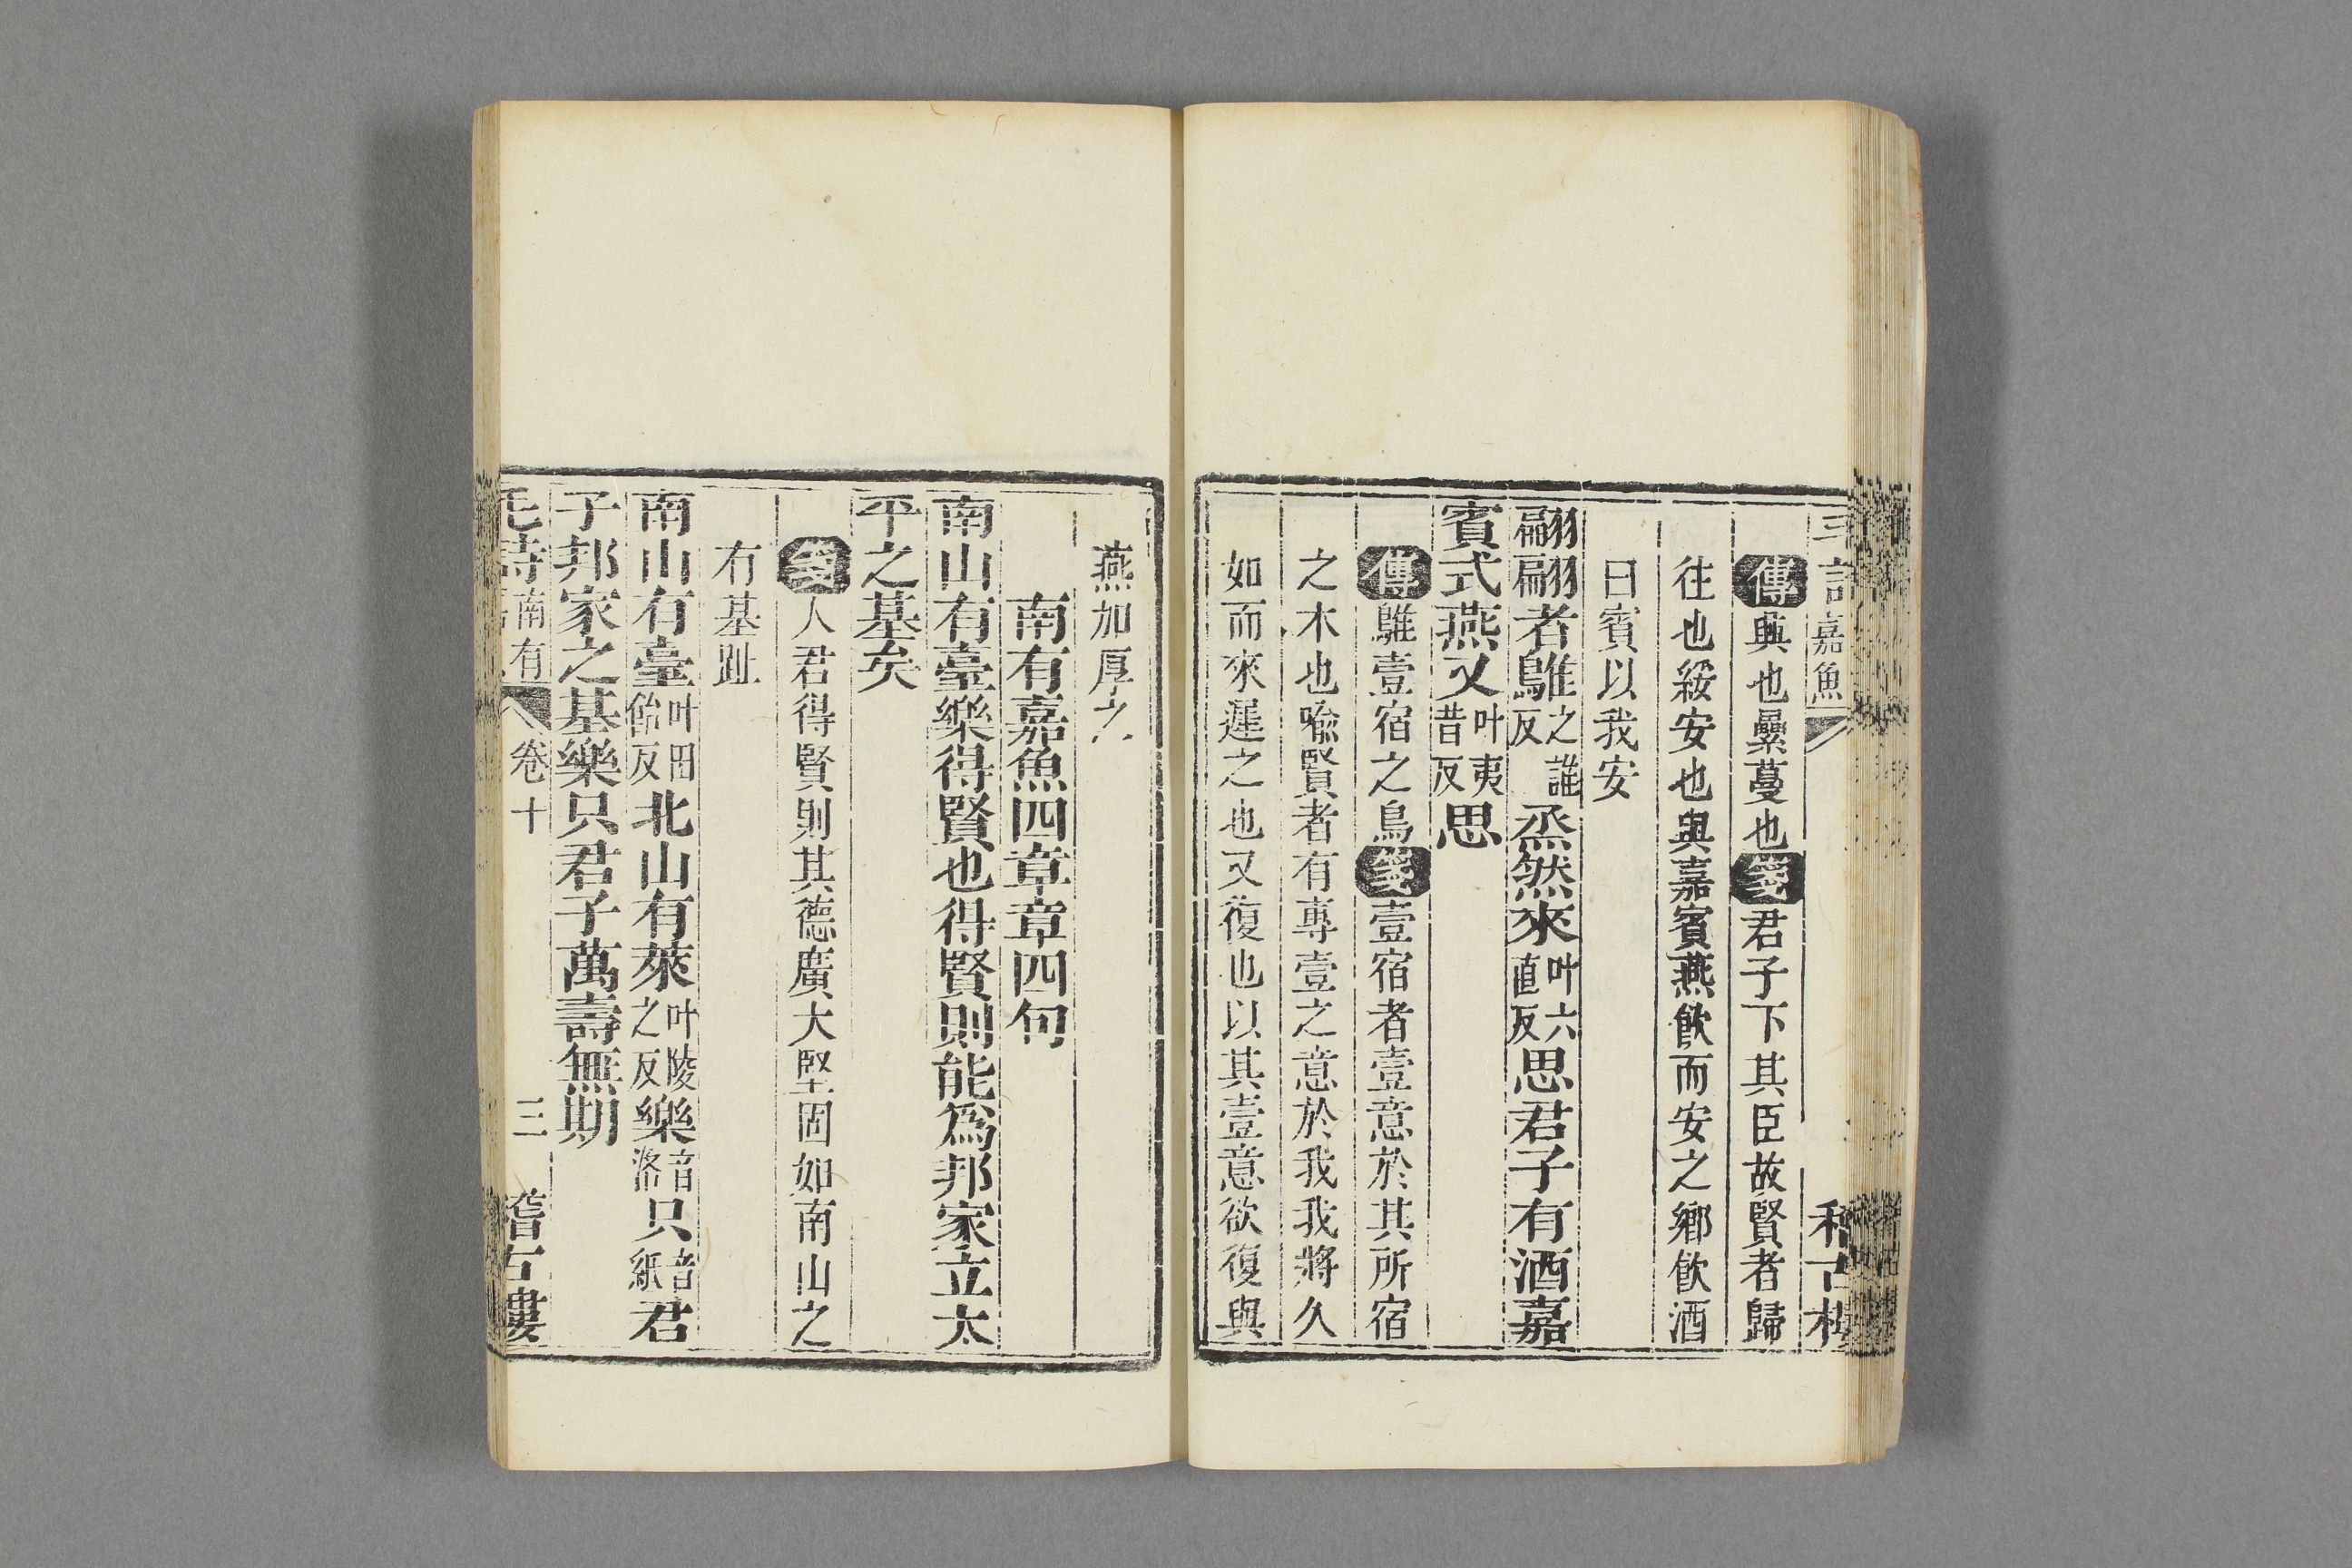 嘉魚
傳興也纍蔓也箋君子下其臣故賢者歸
往也綏安也與嘉賓燕飲而安之鄉飲酒
曰賓以我安
翩翩者鵻之誰反烝然來叶六直反思君子有酒嘉
賓式燕又叶夷昔反思
傳鵻壹宿之鳥箋壹宿者壹意於其所宿
之木也喻賢者有專壹之意於我我將久
如而來遲之也又復也以其壹意欲復與
燕加厚之
南有嘉魚四章章四句
南山有臺樂得賢也得賢則能爲邦家立太
平之基矣
箋人君得賢則其德廣大堅固如南山之
有基趾
南山有臺叶田飴反北山有萊叶陵之反樂音洛只音紙君
子邦家之基樂只君子萬壽無期
毛詩南有 卷十 三 稽古樓